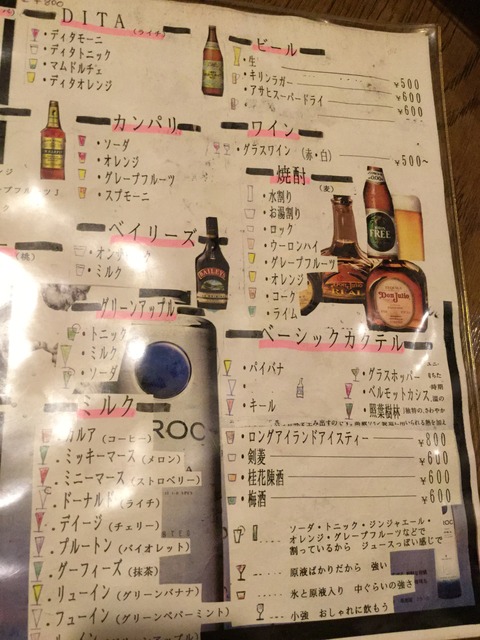 DITA (ライチ)
・ディタモーニ
・ディタトニック
・マムドルチェ
・ディタオレンジ
カンパリ
・ソーダ
・オレンジ
・グレープフルーツ
・スプモーニ
ベイリーズ
・ミルク
グリーンアップル
・トニック
・ミルク
・ソーダ
ミルク
・カルア (コーヒー)
・ミッキーマース (メロン)
・ミニーマース (ストロベリー)
・ドーナルド (ライチ)
・デイージ (チェリー)
・プルートン (バイオレット)
・グーフィーズ (抹茶)
・リューイン (グリーンバナナ)
・フューイン (グリーンペパーミント)
ビール
・生 ¥500
・キリンラガー ¥600
・アサヒスーパードライ ¥600
ワイン
・グラスワイン (赤・白) ¥500~
焼酎 (麦)
・水割り
・お湯割り
・ロック
・ウーロンハイ
・グレープフルーツ
・オレンジ
・コーク
・ライム
FREE
Don Julio
BAILEYS
ベーシックカクテル
・パイパナ
・キール
・グラスホッパー
・ベルモットカシス
・照葉樹林
・ロングアイランドアイスティー ¥800
・剣菱 ¥600
・桂花陳酒 ¥600
・梅酒 ¥600
ROC
ソーダ・トニック・ジンジャエール・
オレンジ・グレープフルーツなどで
割っているから ジュースっぽい感じで
原液ばかりだから 強い
氷と原液入り 中ぐらいの強さ
小強 おしゃれに飲もう